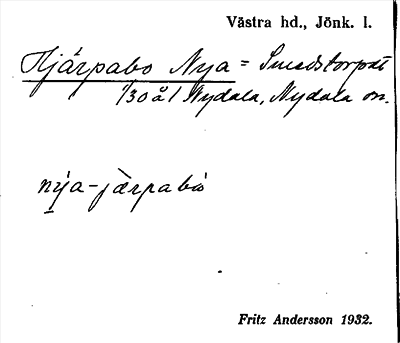 Västra hd., Jönk. l.
Hjärpabo Nya = Smedstorpat
1/30 å 1 Nydala, Nydala sn.
nýa-jàrpabò
Fritz Andersson 1932.